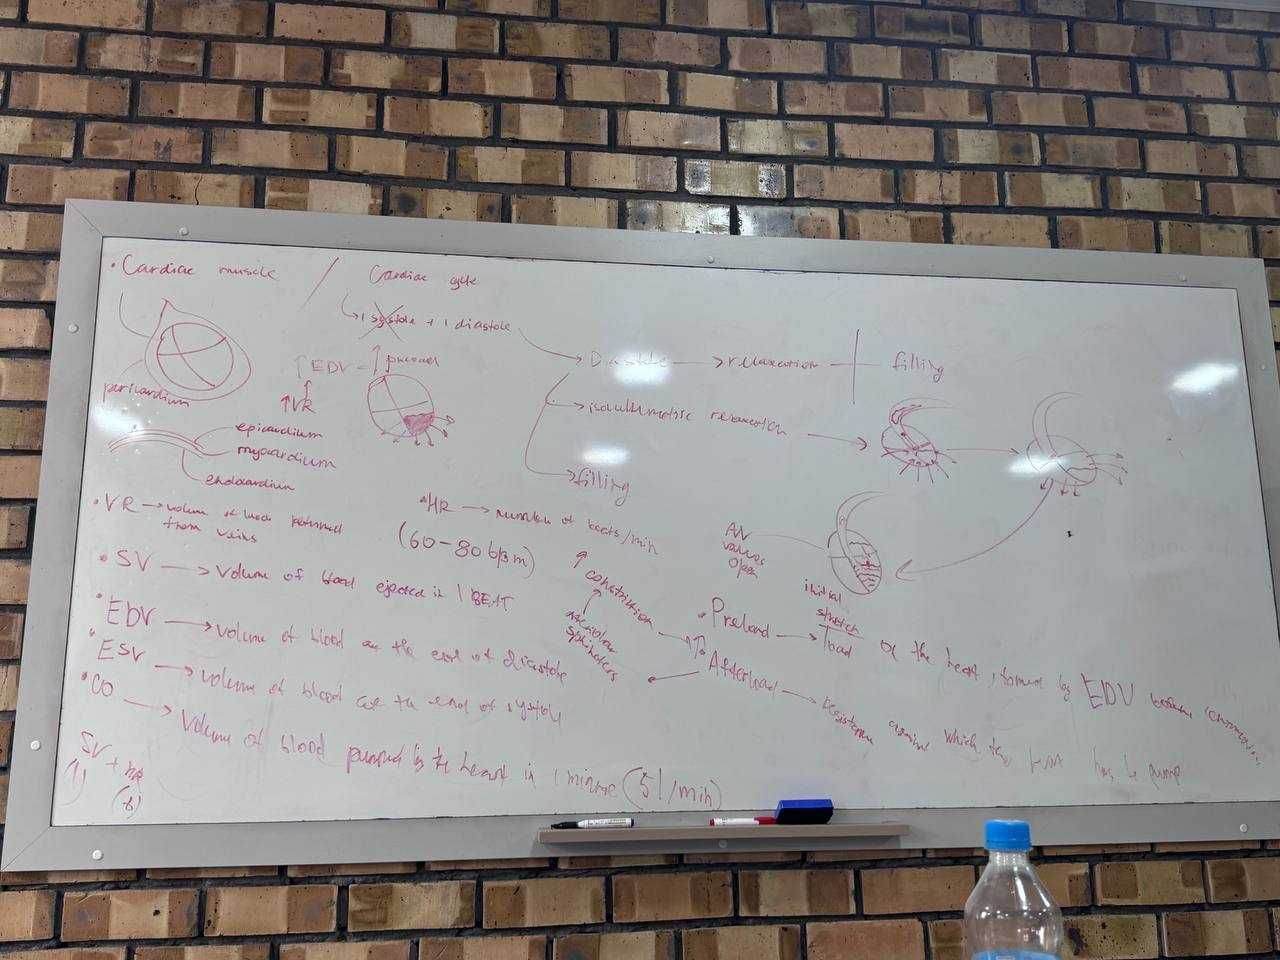 • Cardiac muscle / Cardiac cycle
→ 1 systole + 1 diastole
↑ EDV = ↑ preload
↑VR
pericardium
epicardium
myocardium
endocardium
Diastole → relaxation
filling
→ isovolumetric relaxation
→ filling
• VR → volume of blood returned
from veins
• HR → number of beats/min
(60-80 bpm)
• SV → volume of blood ejected in 1 BEAT
• EDV → volume of blood at the end of diastole
• ESV → volume of blood at the end of systole
• CO → Volume of blood pumped by the heart in 1 minute (5l/min)
SV + HR
AV
valves
open
constriction
sphincters
initial
stretch
• Preload → load of the heart, formed by EDV before
• Afterload → resistance against which the heart has to pump